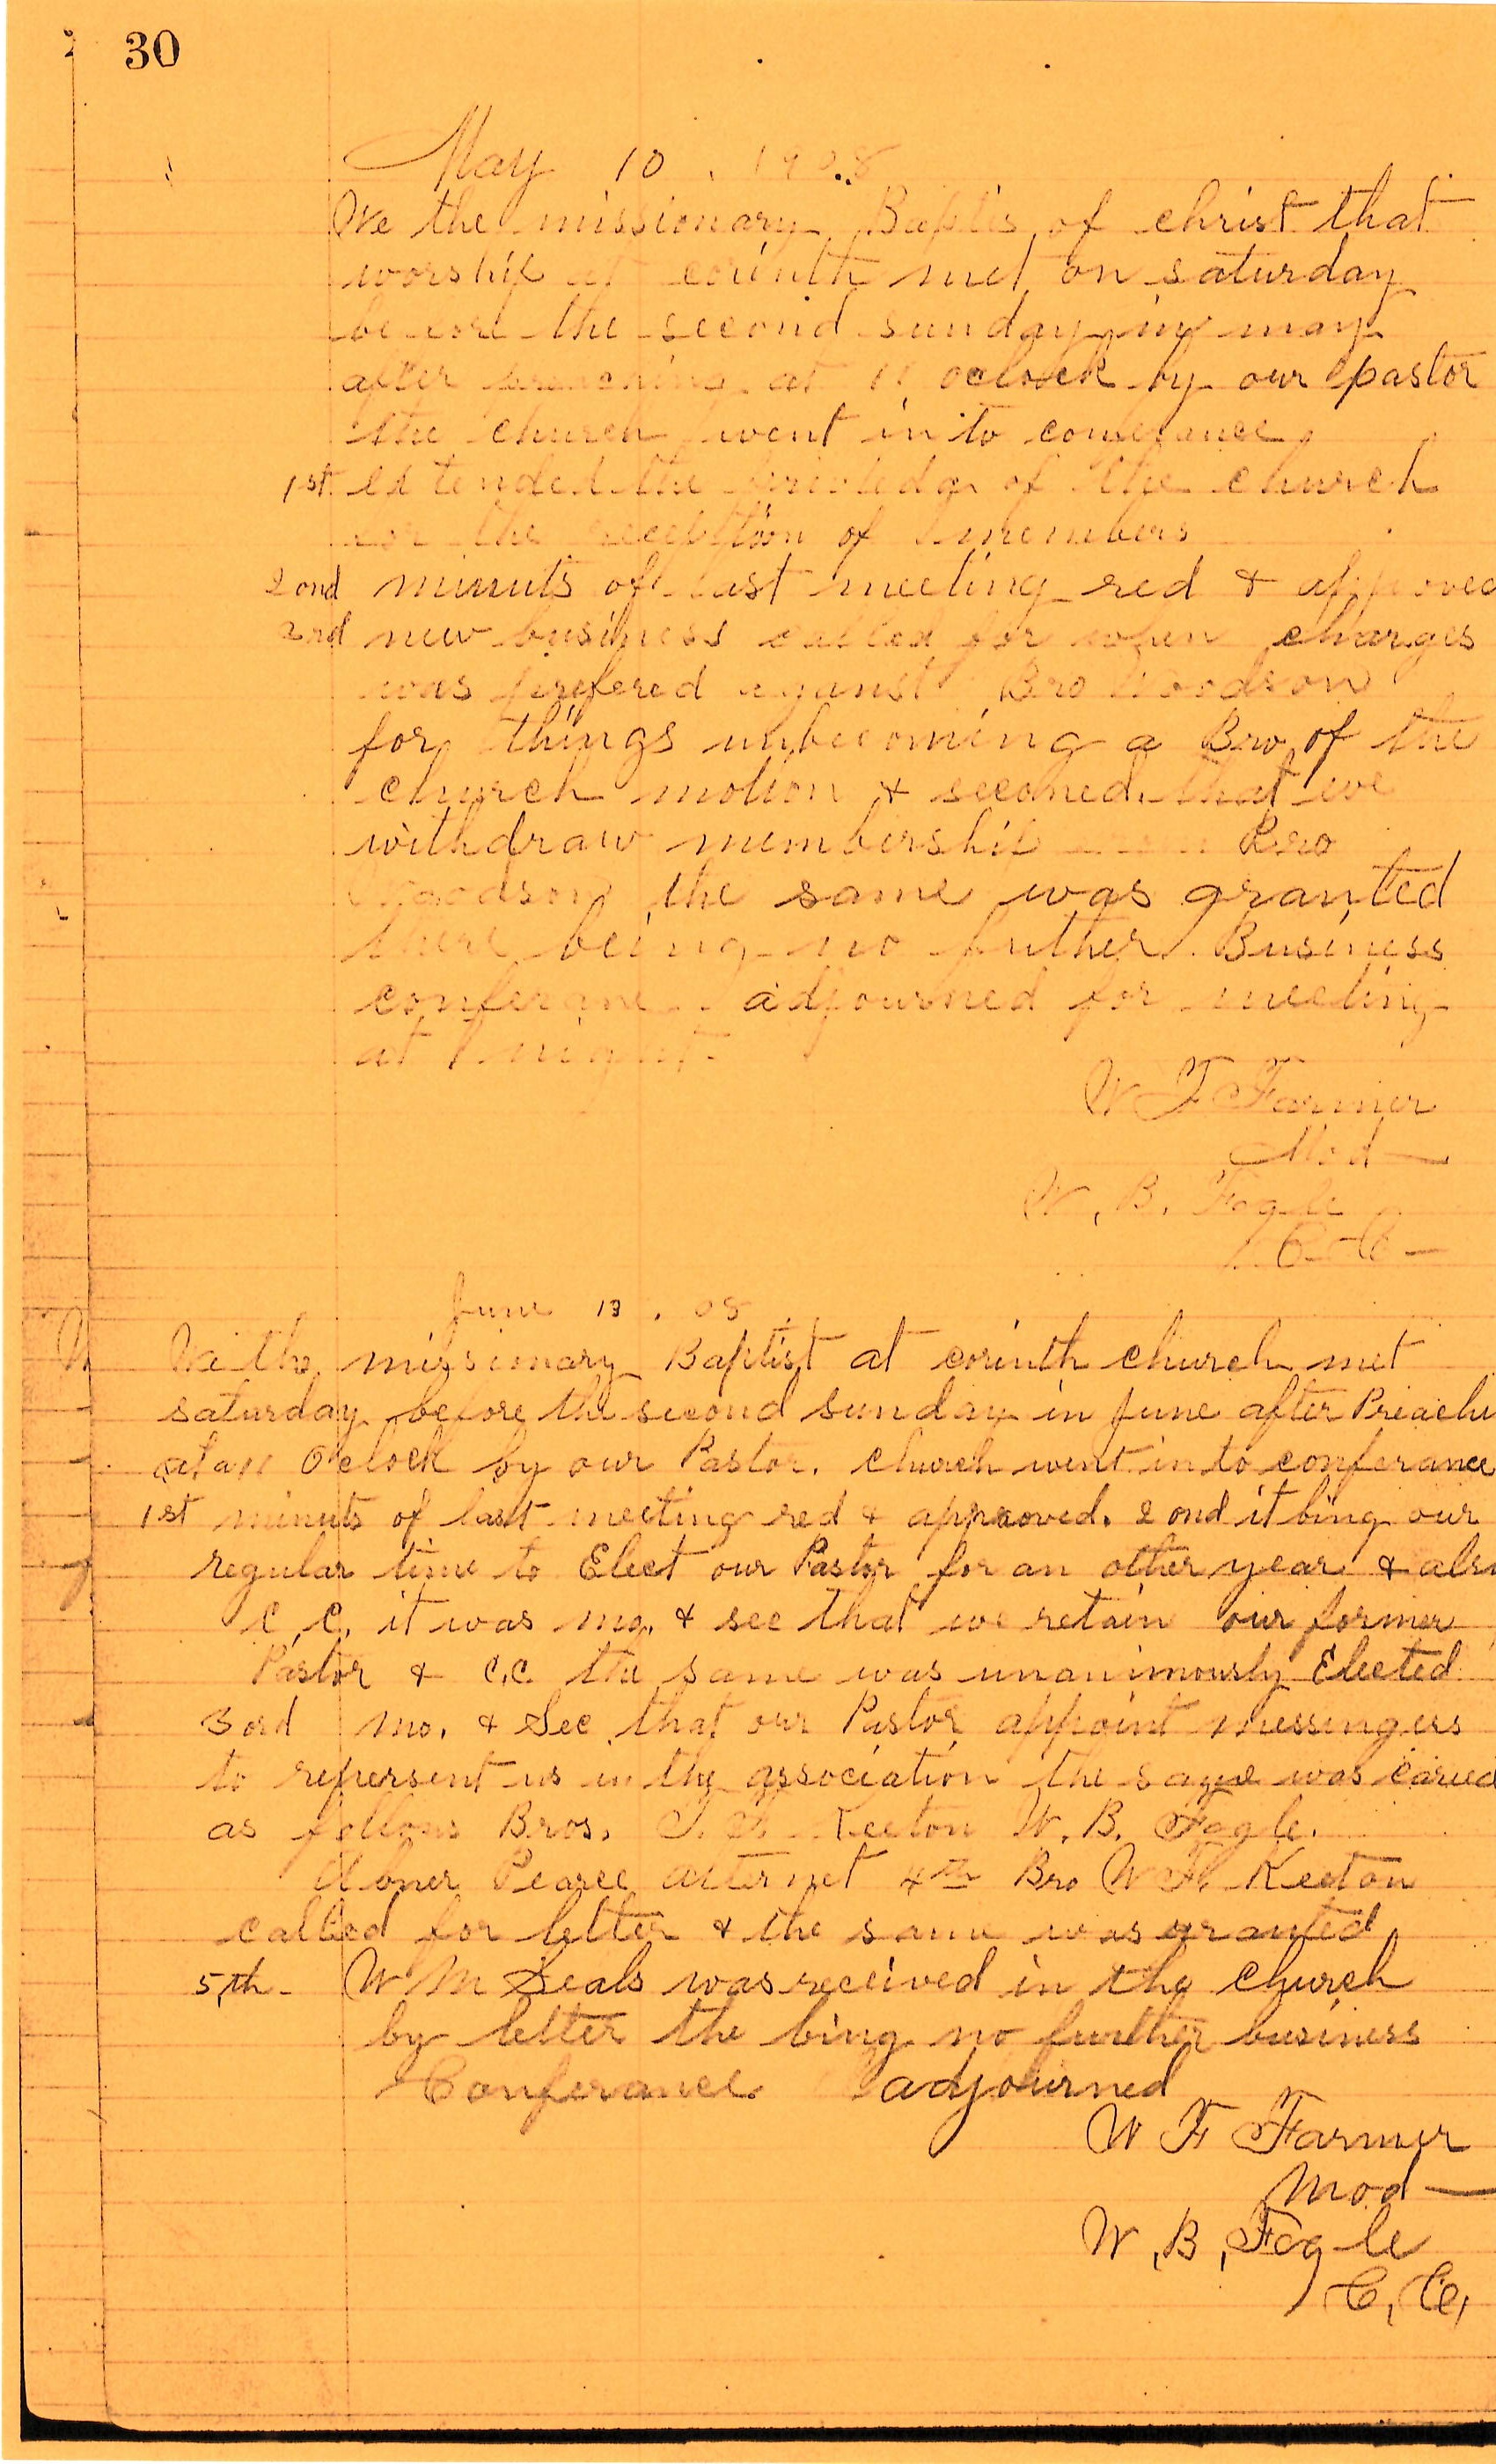 30
May 10, 1908
We the missionary Baptis of christ that
worship at corinth met on saturday
before the second sunday in may
after preaching at 11 oclock by our pastor
the church went in to conferance
1st extended the of the church
for the reception of members
2ond minuts of last meeting red & approved
3rd new business called for when charges
was prefered against Bro Woodson
for things unbecoming a Bro of the
church motion & seconed that we
withdraw membership from Bro
Woodson the same was granted
there being no futher Business
conferance adjourned for meeting
at night.
W F Farmer
Mod—
W. B. Fogle
C. C.—
June 13, 08
We the missinary Baptist at corinth church met
saturday before the second sunday in June after Preachi
at 11 O'clock by our Pastor. church went in to conferance
1st minuts of last meeting red & approoved. 2ond it bing our
regular time to Elect our Pastor for an other year & also
C. C. it was mo. & see that we retain our former
Pastor & C.C. the same was unanimously Elected
3ord mo. & Sec that our Pastor appoint messingers
to repersent us in the association the same was caried
as follows Bros. Keeton W. B. Fogle.
Abner Pearce alternet 4th Bro W. F. Keeton
called for letter & the same was granted
5th- W M Seals was received in the church
by letter the bing no further business
Conferance adjourned
W F Farmer
Mod—
W. B. Fogle
C. C.